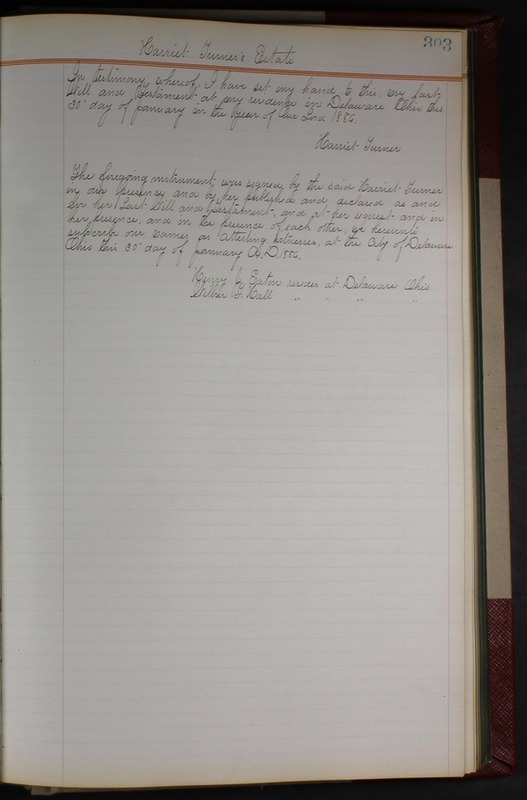 303
Harriet Turner's Estate
In testimony whereof, I have set my hand to this, my last
Will and Testament at my residence in Delaware Ohio this
30" day of January in the year of Our Lord 1886.
Harriet Turner
The foregoing instrument, was signed by the said Harriet Turner
in our presence and by her published and declared as and
for her Last Will and Testament, and at her request and in
her presence, and in the presence of each other, we hereunto
subscribe our names, as attesting witnesses, at the City of Delaware
Ohio this 30" day of January A.D. 1886.
Henry J. Eaton resides at Delaware Ohio
Wilber F. Hall " " " "